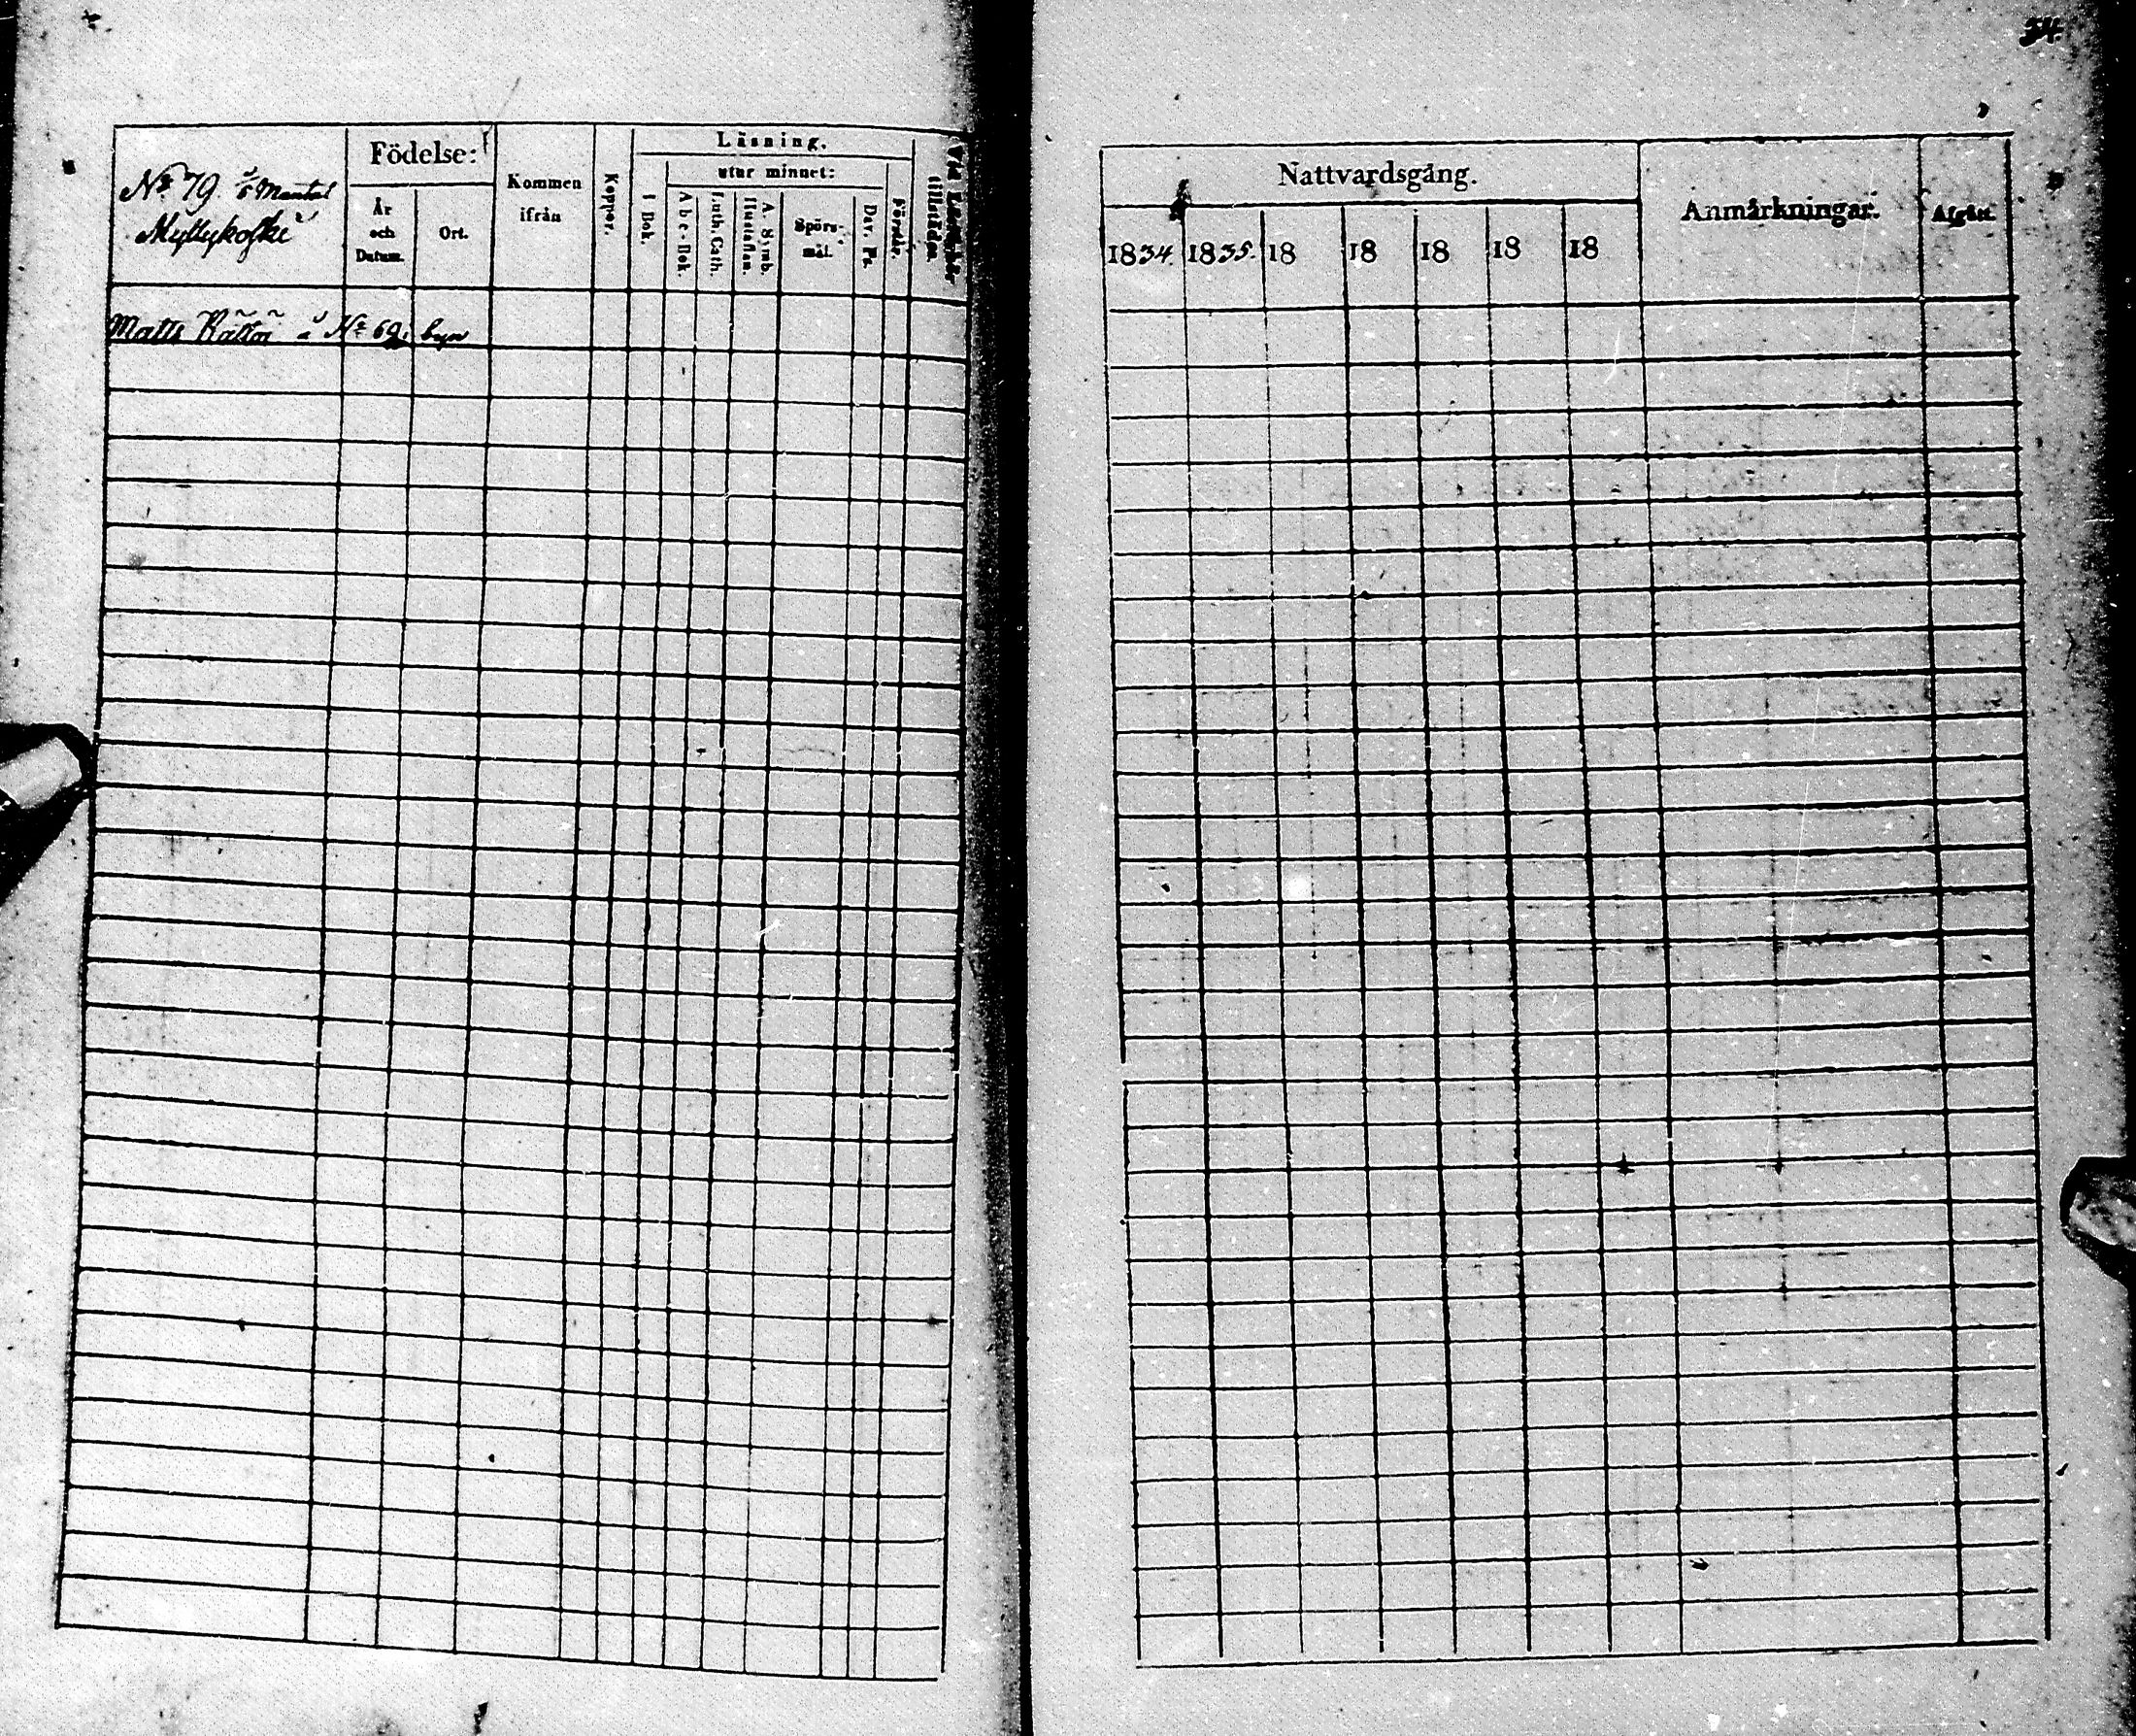 34.
Nº 79. Mantal
Myllykoski
Födelse:
År
och
Datum.
Ort.
Kommen
ifrån
Koppor.
Läsning.
I Bok.
utur minnet:
Abc-Bok.
Luth. Cath.
A. Simb.
Hustaflan.
Spörs-
mål.
Dav. Ps.
Förstår.
Matts à Nº 69 i byn
Nattvardsgång.
1834. 1835. 18 18 18 18 18
Anmärkningar.
Afgått.